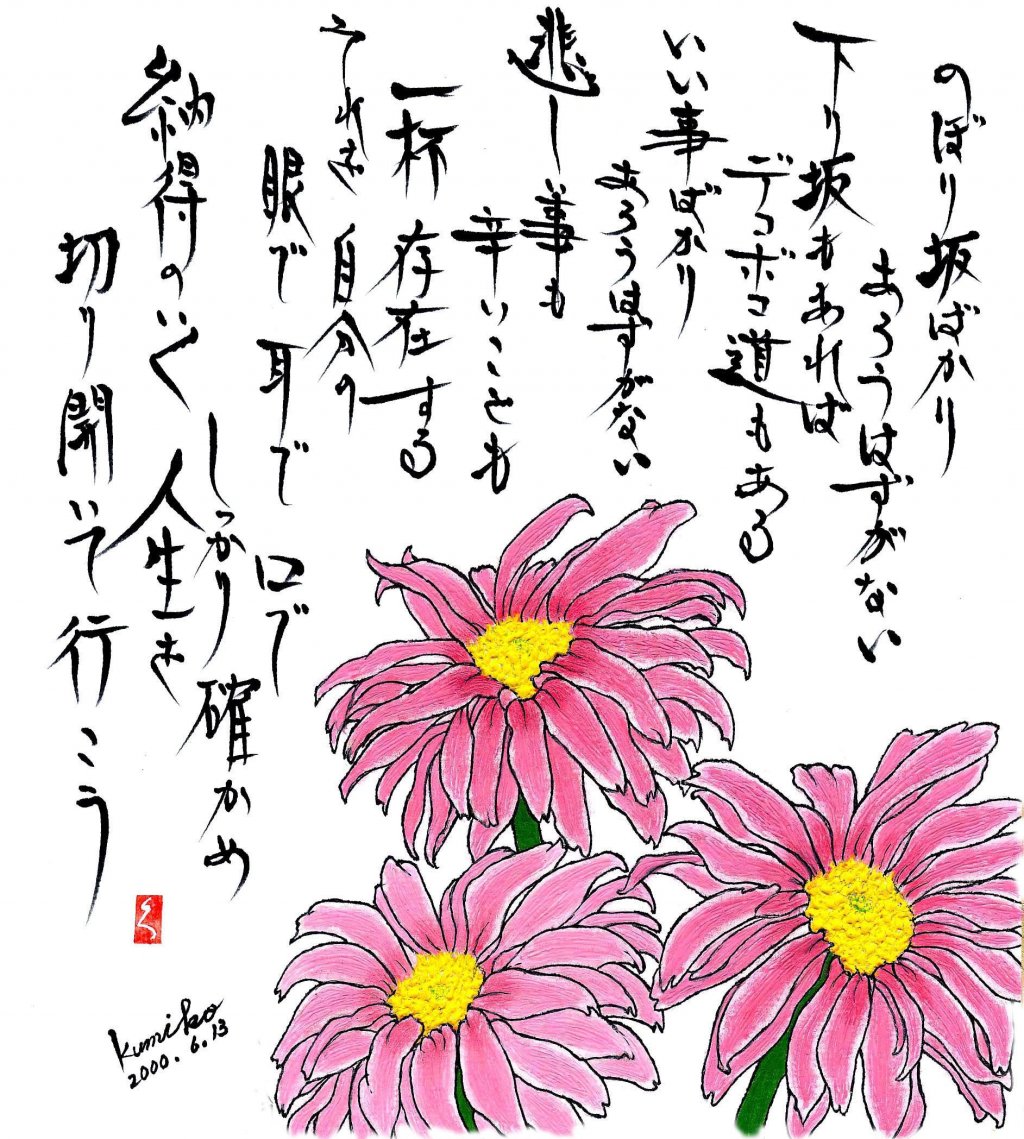 のぼり坂ばかり
あろうはずがない
下り坂もあれば
デコボコ道もある
いい事ばかり
あろうはずがない
悲しい事も
辛いことも
一杯 存在する
それを 自分の
眼で 耳で 口で
しっかり 確かめ
納得のいく 人生を
切り開いて行こう
く
Kumiko
2000.6.13